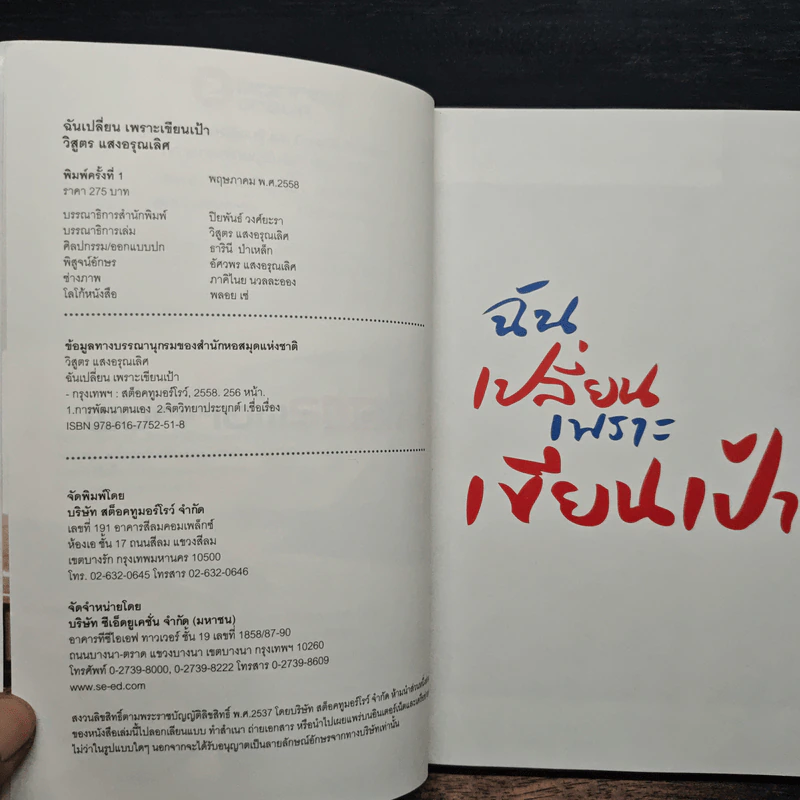 ฉันเปลี่ยน เพราะเขียนเป้า
วิสูตร แสงอรุณเลิศ
พิมพ์ครั้งที่ 1 พฤษภาคม พ.ศ.2558
ราคา 275 บาท
บรรณาธิการสำนักพิมพ์ ปิยพันธ์ วงศ์ยะรา
บรรณาธิการเล่ม วิสูตร แสงอรุณเลิศ
ศิลปกรรม/ออกแบบปก ธารินี ป่าเหล็ก
พิสูจน์อักษร อัศวพร แสงอรุณเลิศ
ช่างภาพ ภาคิไนย นวลละออง
โลโก้หนังสือ พลอย เซ่
ข้อมูลทางบรรณานุกรมของสำนักหอสมุดแห่งชาติ
วิสูตร แสงอรุณเลิศ
ฉันเปลี่ยน เพราะเขียนเป้า
- กรุงเทพฯ : สต็อคทูมอร์โรว์, 2558. 256 หน้า.
1.การพัฒนาตนเอง 2.จิตวิทยาประยุกต์ I.ชื่อเรื่อง
ISBN 978-616-7752-51-8
จัดพิมพ์โดย
บริษัท สต็อคทูมอร์โรว์ จำกัด
เลขที่ 191 อาคารสีลมคอมเพล็กซ์
ห้องเอ ชั้น 17 ถนนสีลม แขวงสีลม
เขตบางรัก กรุงเทพมหานคร 10500
โทร. 02-632-0645 โทรสาร 02-632-0646
จัดจำหน่ายโดย
บริษัท ซีเอ็ดยูเคชั่น จำกัด (มหาชน)
อาคารทีซีไอเอฟ ทาวเวอร์ ชั้น 19 เลขที่ 1858/87-90
ถนนบางนา-ตราด แขวงบางนา เขตบางนา กรุงเทพฯ 10260
โทรศัพท์ 0-2739-8000, 0-2739-8222 โทรสาร 0-2739-8609
www.se-ed.com
สงวนลิขสิทธิ์ตามพระราชบัญญัติลิขสิทธิ์ พ.ศ.2537 โดยบริษัท สต็อคทูมอร์โรว์ จำกัด ห้ามนำส่วนหนึ่ง
ของหนังสือเล่มนี้ไปลอกเลียนแบบ ทำสำเนา ถ่ายเอกสาร หรือนำไปเผยแพร่บนอินเตอร์เน็ตและ
ไม่ว่าในรูปแบบใดๆ นอกจากจะได้รับอนุญาตเป็นลายลักษณ์อักษรจากทางบริษัทเท่านั้น
ฉัน
เปลี่ยน
เพราะ
เขียนเป้า